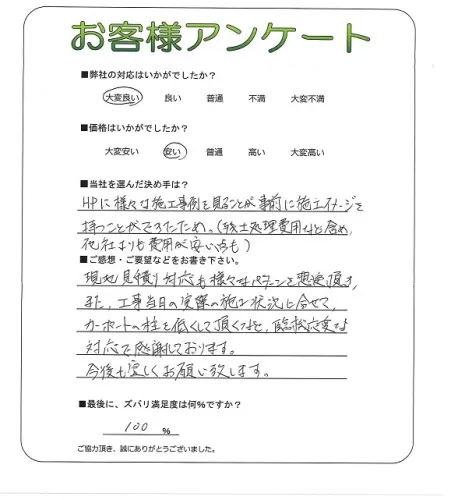 お客様アンケート
■弊社の対応はいかがでしたか？
大変良い 良い 普通 不満 大変不満
■価格はいかがでしたか？
大変安い 安い 普通 高い 大変高い
■当社を選んだ決め手は？
HPに様々な施工事例を見ることが事前に施工イメージを
持つことができたため。(残土処理費用なども含め、
他社よりも費用が安い点も)
■ご感想・ご要望などをお書き下さい。
現地見積り対応も様々なパターンを想定頂き、
また、工事当日の実際の施工状況に合せて、
カーポートの柱を低くして頂くなど、臨機応変な
対応で感謝しております。
今後も宜しくお願い致します。
■最後に、ズバリ満足度は何%ですか？
100 %
ご協力頂き、誠にありがとうございました。